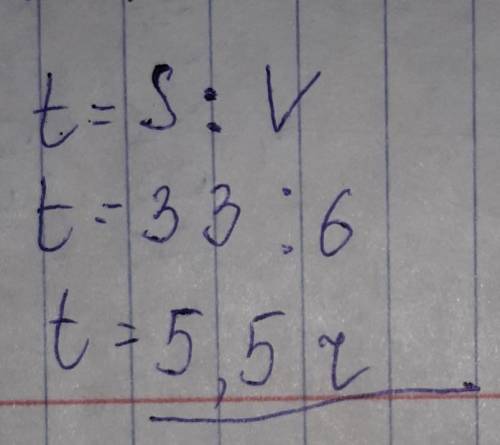 t = S : V
t = 33 : 6
t = 5,5 ч